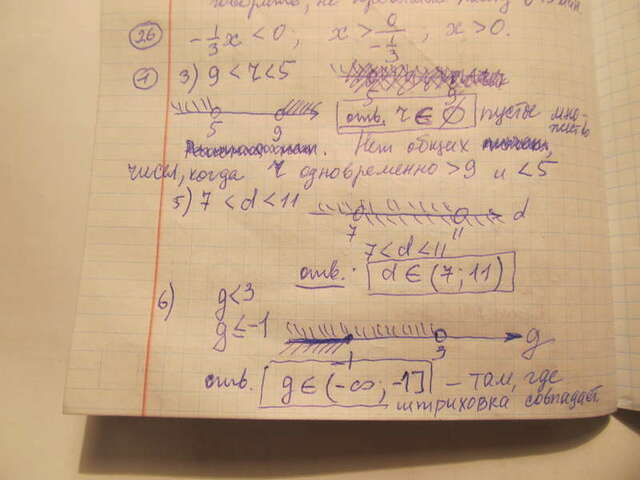 26
-1/3x < 0; x > 0/(-1/3), x > 0.
1 3) 9 < r < 5
5 9
5 9
отв. r ∈ ∅ пустое мно-
жество
Нет общих
чисел, когда r одновременно > 9 и < 5
5) 7 < d < 11
7 11 d
7 < d < 11
отв.: d ∈ (7; 11)
6) g < 3
g ≤ -1
-1 3 g
отв. g ∈ (-∞; -1] – там, где
штриховка совпадает.